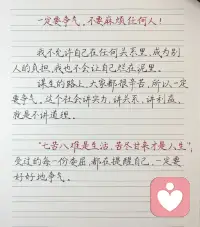 一定要争气，不要麻烦任何人！
我不允许自己在任何关系里，成为别
人的负担，我也不会让自己烂在泥里。
谋生的路上，大家都很辛苦，所以一定
要争气。这个社会讲实力，讲关系，讲利益，
就是不讲道理。
“七苦八难是生活，苦尽甘来才是人生”，
受过的每一份委屈，都在提醒自己，一定要
好好地争气。